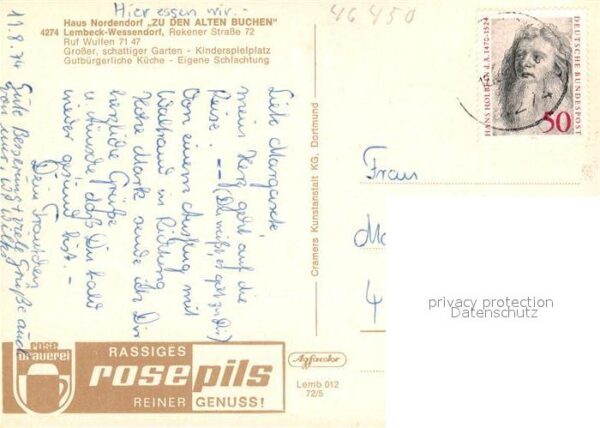 Hier essen wir.-
46450
Haus Nordendorf „ZU DEN ALTEN BUCHEN"
4274 Lembeck-Wessendorf, Rekener Straße 72
Ruf Wulfen 71 47
Großer, schattiger Garten - Kinderspielplatz
Gutbürgerliche Küche - Eigene Schlachtung
11.8.74
Liebe Margarete,
mein Herz geht auf die
Reise. -- (Du weißt, es geht zu Dir)
Von einem Ausflug mit
Waltraud in Richtung
Hohe Mark sende ich Dir
herzliche Grüße
u. wünsche, daß Du bald
wieder gesund bist. -
Dein Trautchen
Gute Besserung + viele Grüße auch
von mir, Willi
Cramers Kunstanstalt KG, Dortmund
HANS HOLBEIN d.Ä. 1470-1524
DEUTSCHE BUNDESPOST
50
Frau
4
privacy protection
Datenschutz
rose
brauerei
RASSIGES
rose pils
REINER GENUSS!
Agfacolor
Lemb 012
72/5